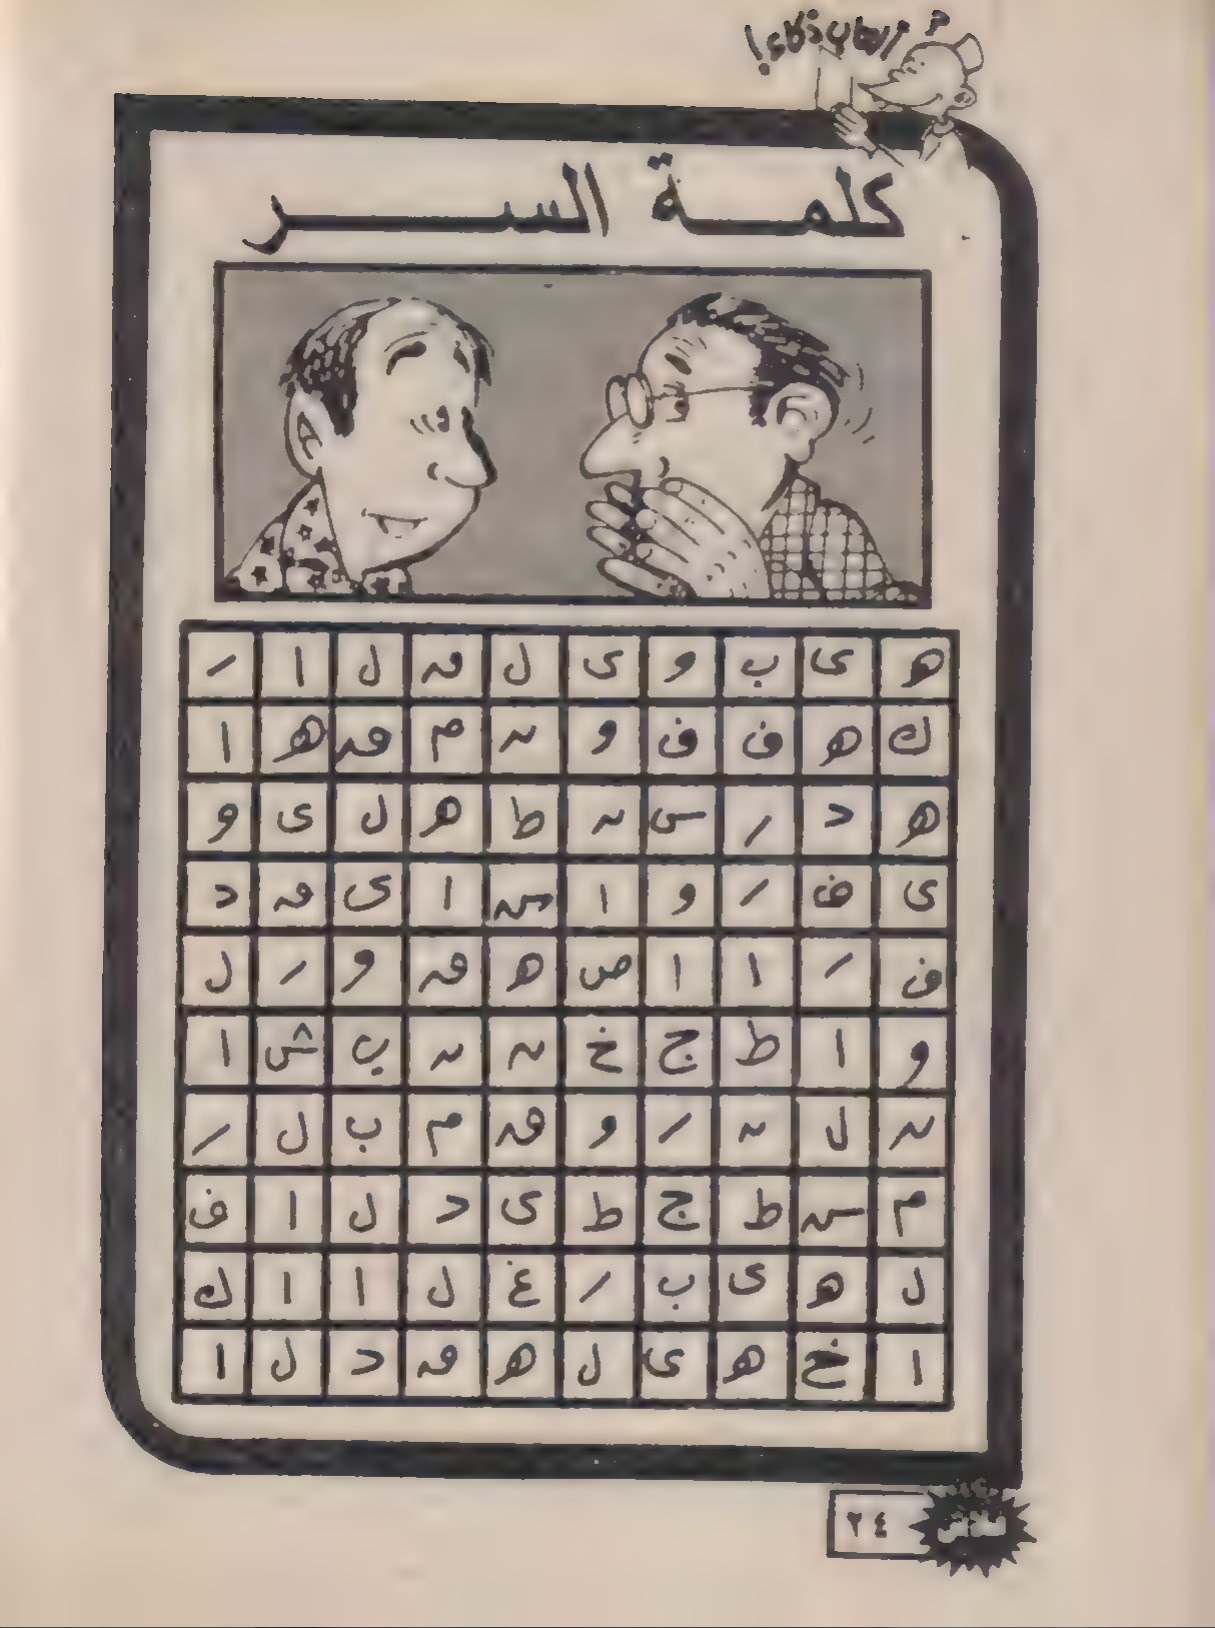 ألعاب ذكاء!
كلمة السر
ه ى ب و ى ل ق ل ا ر
ك ه ف ف و ن م ق ه ا
ه د ر س ن ط ه ل ى و
ى ف ر و ا ش ا ى ق د
ف ر ا ا ص ه ق و ر ل
و ا ط ج خ ن ن ب ش ا
ن ل ن ر و ق م ب ل ر
م ش ط ج ط ى د ل ا ف
ل ه ى ب ر غ ل ا ا ك
ا خ ه ى ل ه ق د ل ا
٢٤